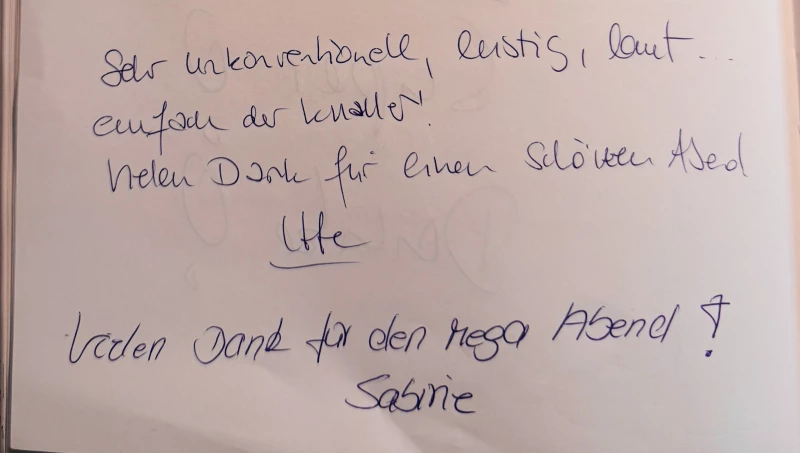 Sehr unkonventionell, lustig, laut...
einfach der Knaller!
Vielen Dank für einen schönen Abend
Ute
Vielen Dank für den mega Abend!
Sabine